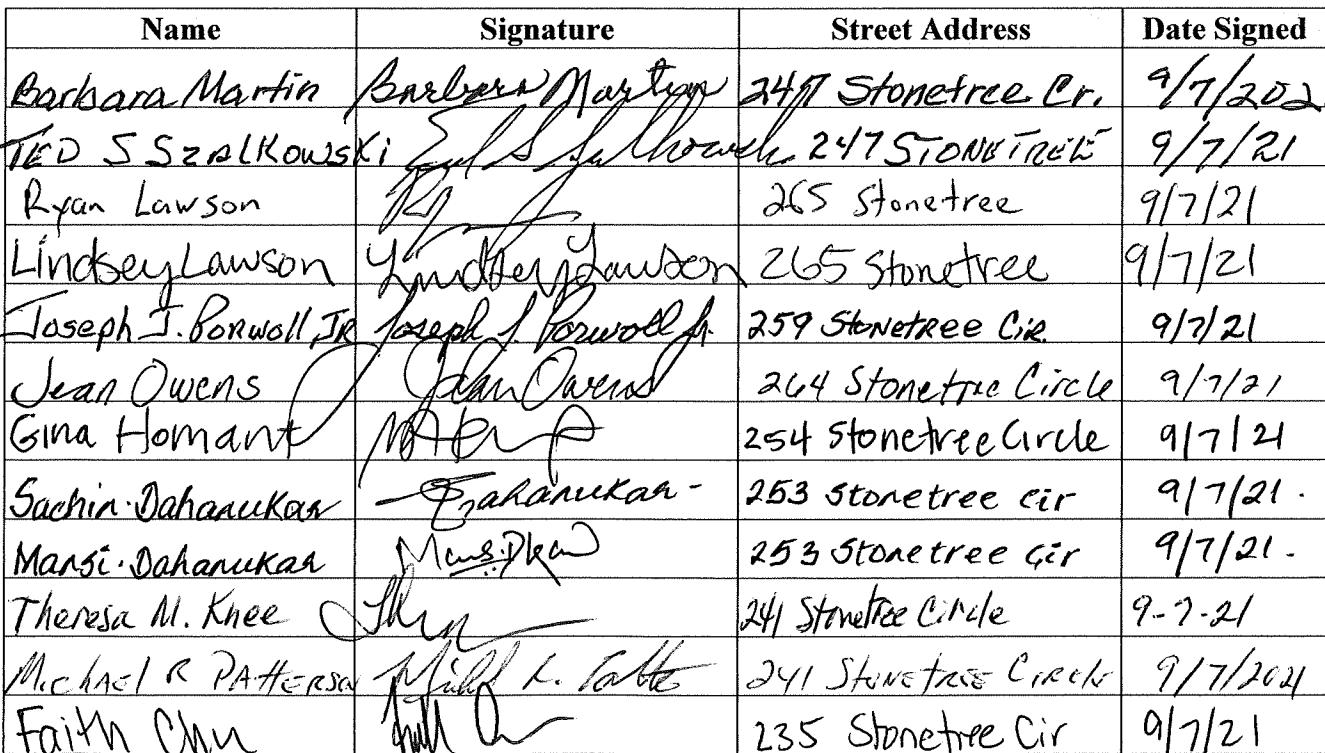 Name Signature Street Address Date Signed
Barbara Martin Barbara Martin 247 Stonetree Cr. 9/7/202
TED S SZALKOWSKI 247 STONETREE 9/7/21
Ryan Lawson 265 Stonetree 9/7/21
Lindsey Lawson Lindsey Lawson 265 Stonetree 9/7/21
Joseph J. Porwoll JR Joseph J. Porwoll Jr. 259 Stonetree Cir. 9/7/21
Jean Owens Jean Owens 264 Stonetree Circle 9/7/21
Gina Homant 254 Stonetree Circle 9/7/21
Sachin Dahanukar Dahanukar 253 Stonetree cir 9/7/21.
Mansi Dahanukar 253 Stonetree cir 9/7/21.
Theresa M. Knee 241 Stonetree Circle 9-7-21
Michael R Patterson 241 Stonetree Circle 9/7/2021
Faith Chu 235 Stonetree Cir 9/7/21